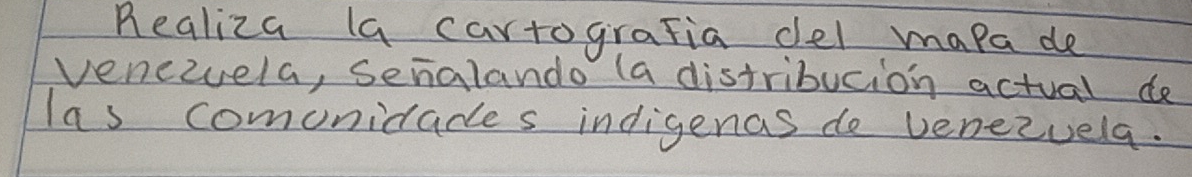 Realiza la cartografia del mapa de
venezuela, señalando la distribución actual de
las comunidades indigenas de venezuela.